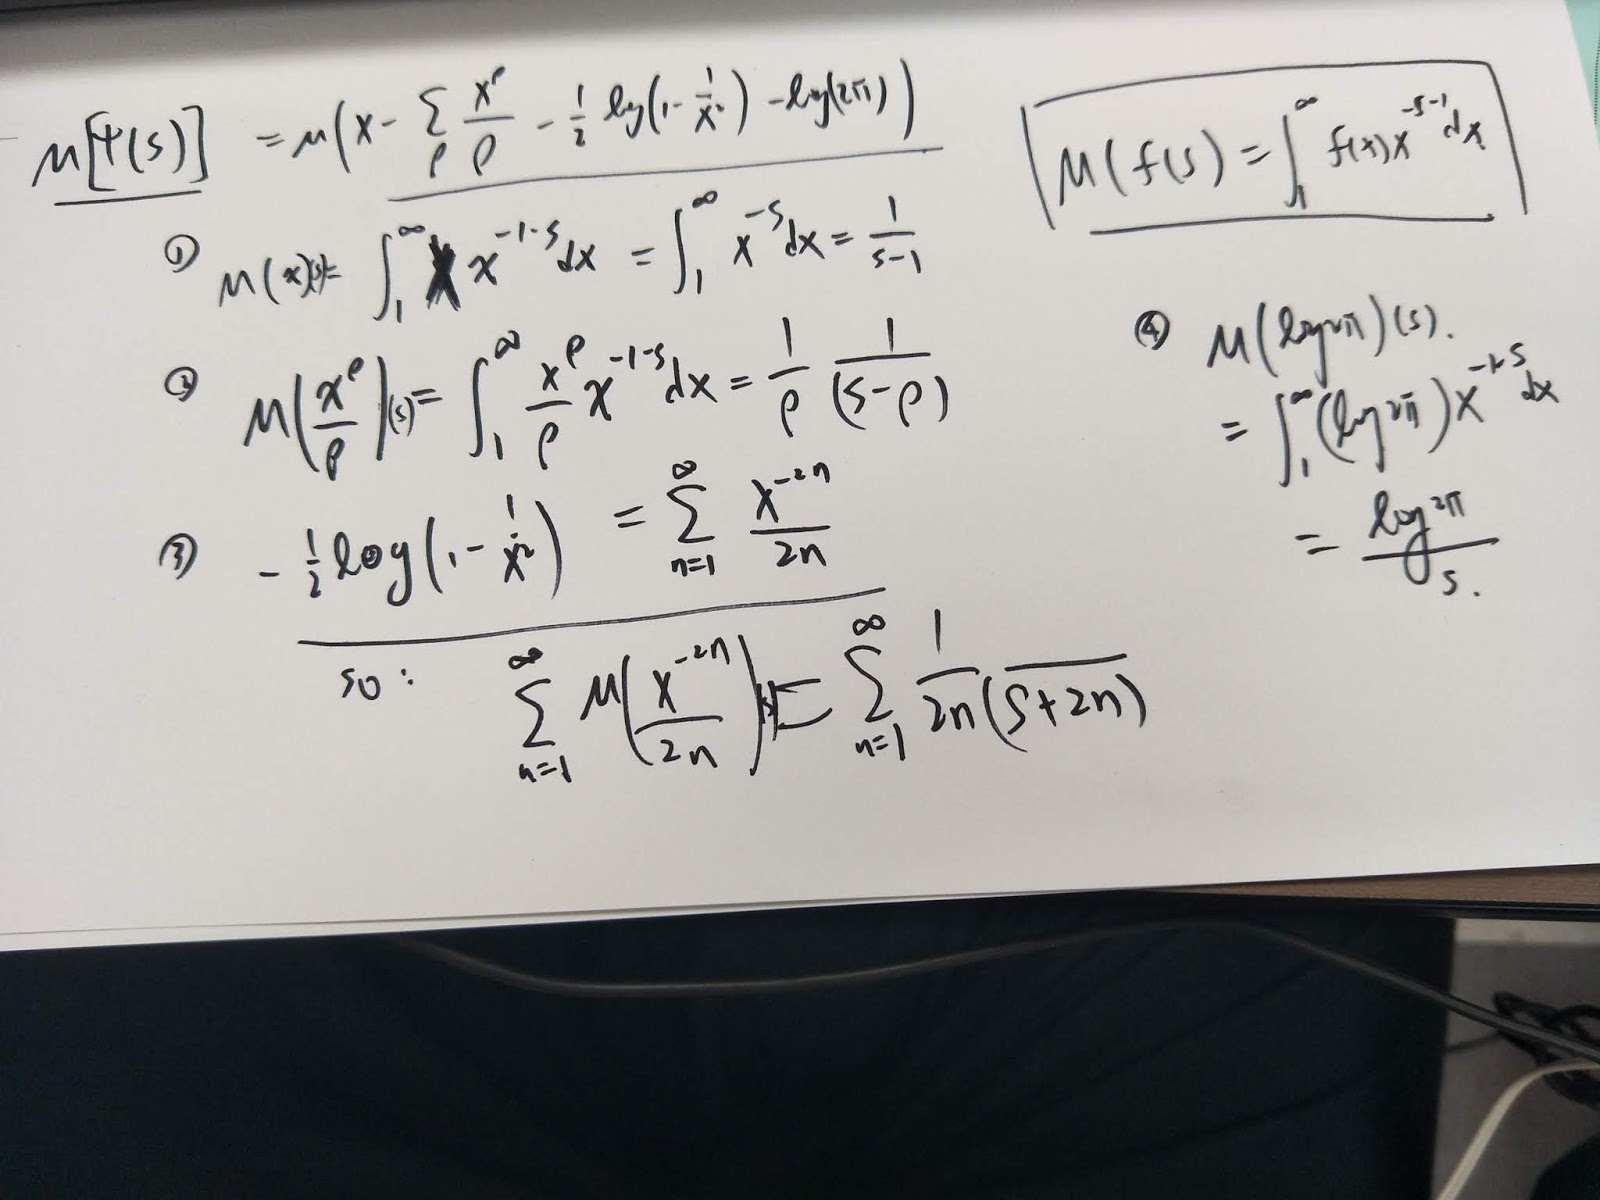 M[Ψ(s)] = M(x - Σ_ρ x^ρ/ρ - 1/2 log(1 - 1/x²) - log(2π))
M(f(s) = ∫_1^∞ f(x) x^{-s-1} dx
① M(x)(s) = ∫_1^∞ x x^{-1-s} dx = ∫_1^∞ x^{-s} dx = 1/(s-1)
② M(x^ρ/ρ)(s) = ∫_1^∞ x^ρ/ρ x^{-1-s} dx = 1/ρ 1/(s-ρ)
③ - 1/2 log(1 - 1/x²) = Σ_{n=1}^∞ x^{-2n}/2n
so: Σ_{n=1}^∞ M(x^{-2n}/2n)(s) = Σ_{n=1}^∞ 1/2n(s+2n)
④ M(log2π)(s).
= ∫_1^∞ (log2π) x^{-1-s} dx
= log2π/s.